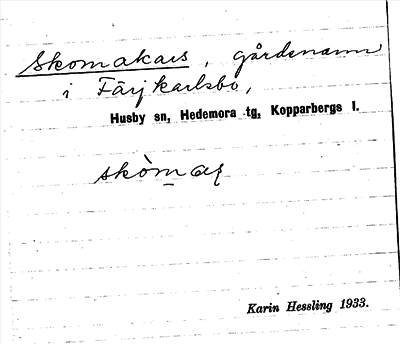 Skomakars, gårdsnamn
i Färjkarlsbo,
Husby sn, Hedemora tg, Kopparbergs l.
skòm
Karin Hessling 1933.